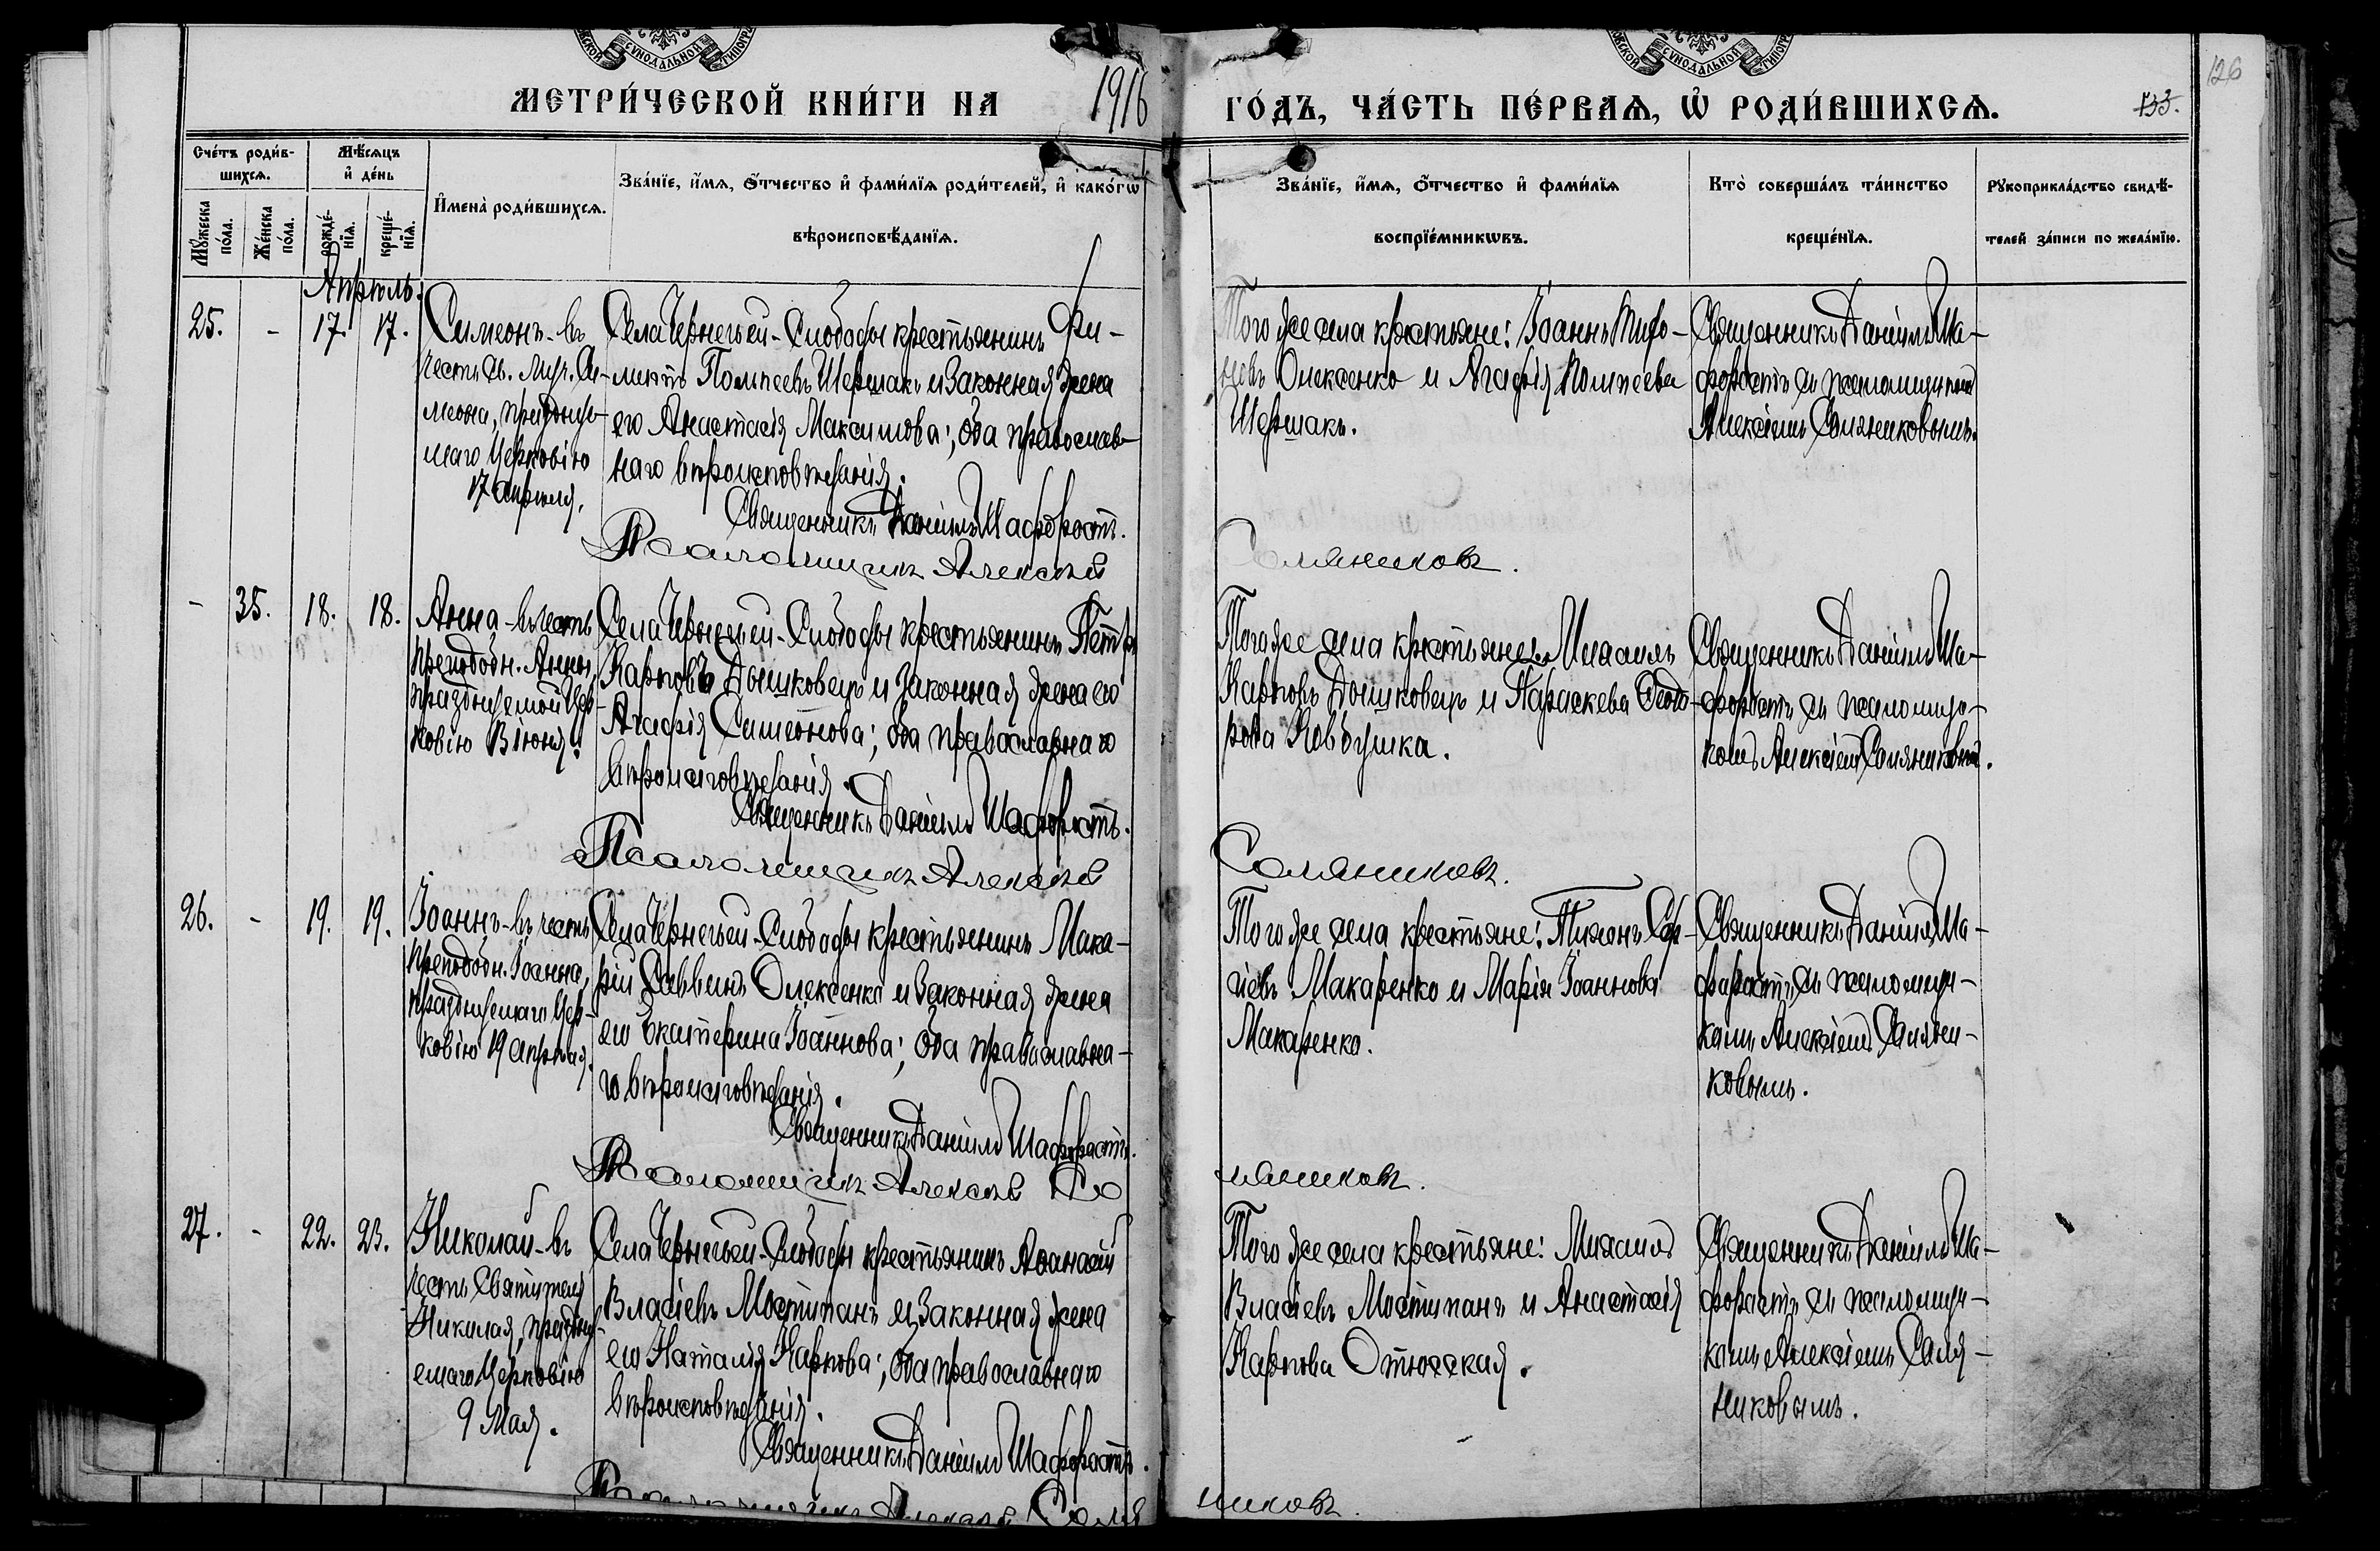 МЕТРИ́ЧЕСКОЙ КНИ́ГИ НА 1916 ГО́ДЪ, ЧА́СТЬ ПЕ́РВАѦ, Ѡ҆ РОДИ́ВШИХСѦ.
126
133.
Сче́тъ роди́в-
шихсѧ.
Мѣ́сѧцъ
и҆ де́нь
Мꙋ́жеска по́ла.
Же́нска по́ла.
рожде́-
нїѧ.
креще́-
нїѧ.
И҆мена̀ роди́вшихсѧ.
Зва́нїе, и҆́мѧ, ѻ҆́тчество и҆ фами́лїѧ роди́телей, и҆ како́гѡ
вѣроисповѣ́данїѧ.
Зва́нїе, и҆́мѧ, ѻ҆́тчество и҆ фами́лїѧ
воспрїе́мникѡвъ.
Кто̀ соверша́лъ та́инство
креще́нїѧ.
Рꙋкоприкла́дство свидѣ́-
телей за́писи по жела́нїю.
Апрѣль.
25. - 17. 17.
Симеонъ - въ
честь св. муч. Си-
меона, праздну-
маго Церковію
17 апрѣля.
Села Чернечьей-Слободы крестьянинъ Фи-
липпъ Помпеевъ Шершакъ и законная жена
его Анастасія Максимова; оба православ-
наго вѣроисповѣданія.
Священникъ Даніилъ Шафоростъ.
Псаломщикъ Алексѣй Соляниковъ.
Того же села крестьяне: Іоаннъ Миро-
новъ Олексенко и Агафія Помпеева
Шершакъ.
Священникъ Даніилъ Ша-
форостъ съ псаломщикомъ
Алексіемъ Соляниковымъ.
- 35. 18. 18.
Анна - въ честь
преподобн. Анны,
празднуемой Цер-
ковію 13 іюня.
Села Чернечьей-Слободы крестьянинъ Петръ
Карповъ Дошковецъ и законная жена его
Агафія Симеонова; оба православнаго
вѣроисповѣданія.
Священникъ Даніилъ Шафоростъ.
Псаломщикъ Алексѣй Соляниковъ.
Того же села крестьяне: Михаилъ
Карповъ Дошковецъ и Параскева Ѳеодо-
рова Ковбушка.
Священникъ Даніилъ Ша-
форостъ съ псаломщи-
комъ Алексіемъ Соляниковымъ.
26. - 19. 19.
Іоаннъ - въ честь
преподобн. Іоанна,
празднуемаго Цер-
ковію 19 апрѣля.
Села Чернечьей-Слободы крестьянинъ Мака-
рій Саввинъ Олексенко и законная жена
его Екатерина Іоаннова; оба православна-
го вѣроисповѣданія.
Священникъ Даніилъ Шафоростъ.
Псаломщикъ Алексѣй Соляниковъ.
Того же села крестьяне: Тихонъ Сер-
гіевъ Макаренко и Марія Іоаннова
Макаренко.
Священникъ Даніилъ Ша-
форостъ съ псаломщи-
комъ Алексіемъ Соляни-
ковымъ.
27. - 22. 23.
Николай - въ
честь Святителя
Николая, праздну-
емаго Церковію
9 Мая.
Села Чернечьей-Слободы крестьянинъ Аѳанасій
Власіевъ Мостипанъ и законная жена
его Наталія Карпова; оба православнаго
вѣроисповѣданія.
Священникъ Даніилъ Шафоростъ.
Псаломщикъ Алексѣй Соляниковъ.
Того же села крестьяне: Михаилъ
Власіевъ Мостипанъ и Анастасія
Карпова Отюсская.
Священникъ Даніилъ Ша-
форостъ съ псаломщи-
комъ Алексіемъ Соля-
никовымъ.